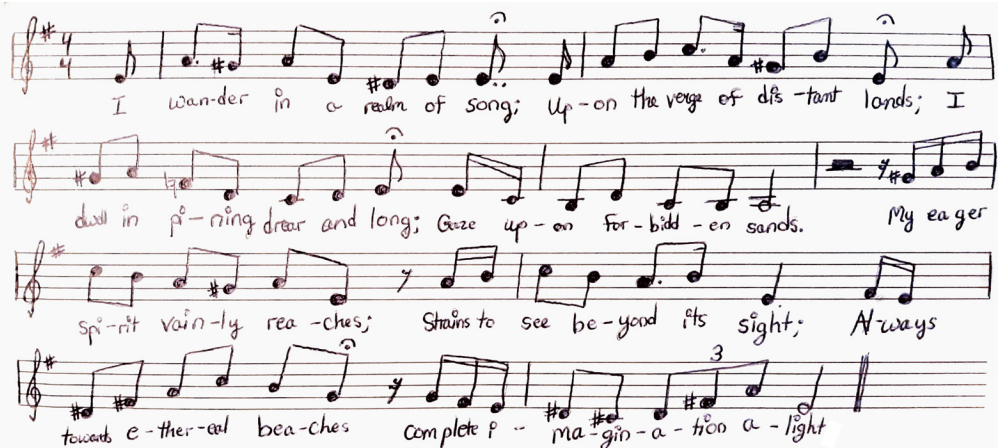 4 4
I wan-der in a realm of song; Up-on the verge of dis-tant lands; I
dwell in pi-ning drear and long; Gaze up-on for-bidd-en sands. My eager
spi-rit vain-ly rea-ches; Strains to see be-yond its sight; Al-ways
3
towards e-ther-eal bea-ches complete i-- ma-gin-a-tion a-light